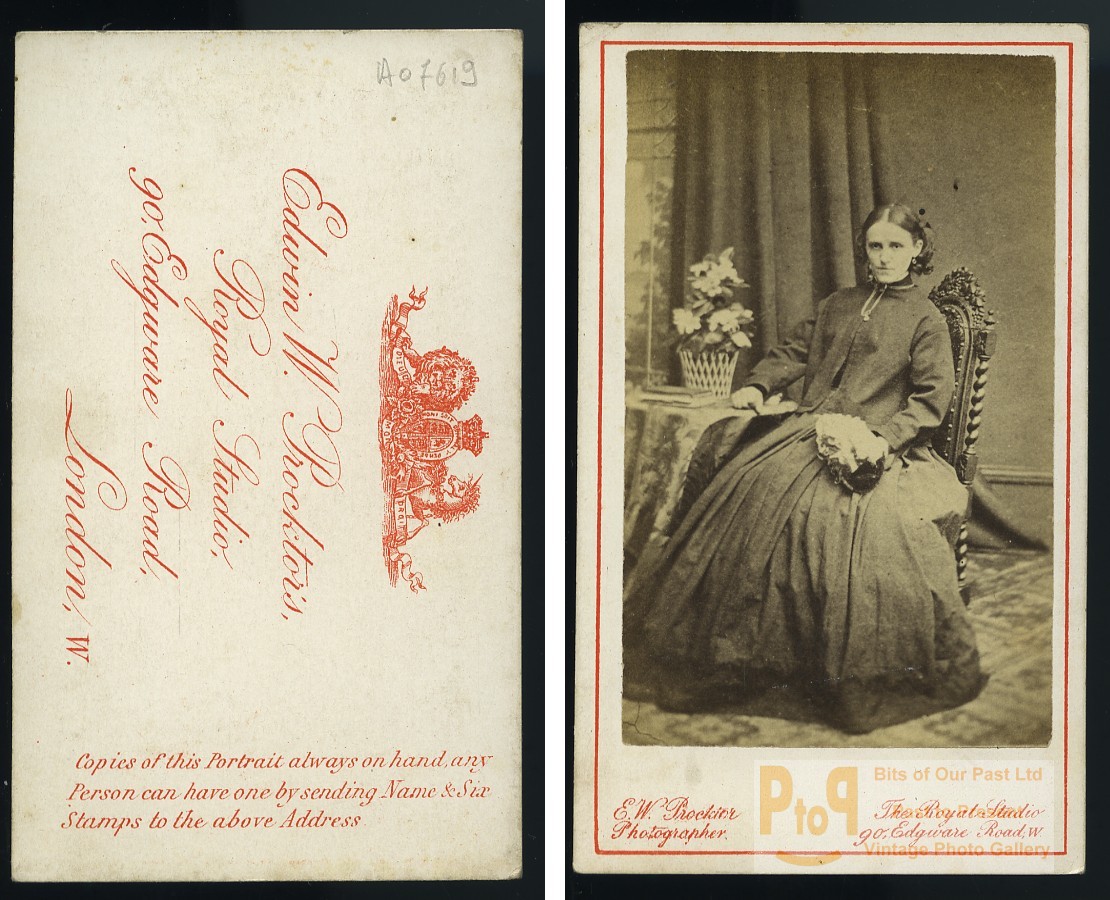 A07619
Edwin W. Procktor's,
Royal Studio,
90, Edgware Road,
London, W.
DIEU ET MON DROIT
HONI SOIT
PENSE
Copies of this Portrait always on hand, any
Person can have one by sending Name & Six
Stamps to the above Address
E.W. Procktor
Photographer.
The Royal Studio
90, Edgware Road, W.
PtoP
Bits of Our Past Ltd
Vintage Photo Gallery